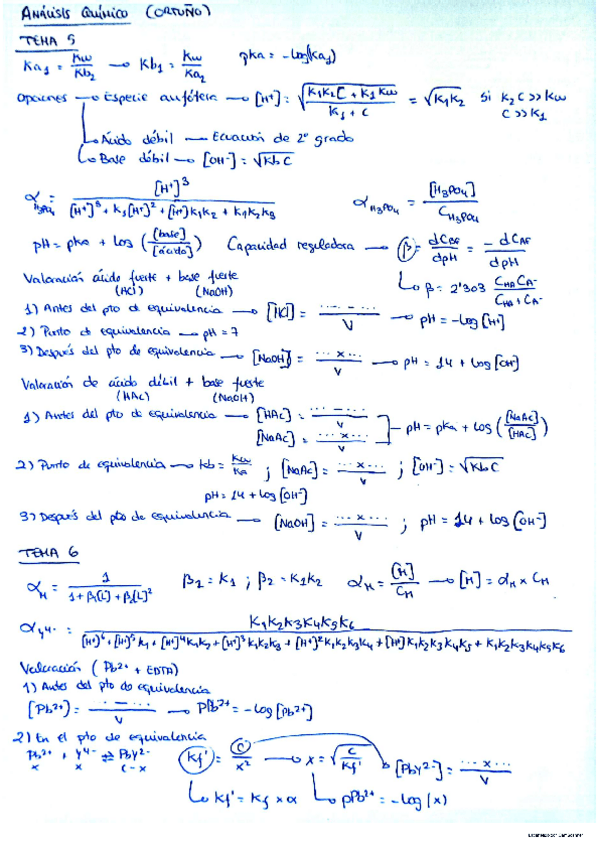 ANÁLISIS QUÍMICO (ORTUÑO)
TEMA 5
Ka1 = Kw/Kb2 → Kb1 = Kw/Ka2   pKa = -log(Ka1)
Opciones → Especie anfótera → [H+] = √((K1K2C + K1Kw)/(K1 + C)) = √K1K2 si K2C >> Kw
C >> K1
→ Ácido débil → Ecuación de 2º grado
→ Base débil → [OH-] = √KbC
αH3PO4 = [H+]^3 / ([H+]^3 + K1[H+]^2 + [H+]K1K2 + K1K2K3)   αH3PO4 = [H3PO4]/CH3PO4
pH = pKa + log([base]/[ácido])   Capacidad reguladora → β = dCBF/dpH = -dCAF/dpH
Valoración ácido fuerte + base fuerte   → β = 2'303 CHACA-/(CHA + CA-)
(HCl) (NaOH)
1) Antes del pto de equivalencia → [HCl] = (... - ...)/V → pH = -log[H+]
2) Punto de equivalencia → pH = 7
3) Después del pto de equivalencia → [NaOH] = (... x ...)/V → pH = 14 + log[OH-]
Valoración de ácido débil + base fuerte
(HAc) (NaOH)
1) Antes del pto de equivalencia → [HAc] = (... - ...)/V
[NaAc] = (... x ...)/V → pH = pKa + log([NaAc]/[HAc])
2) Punto de equivalencia → Kb = Kw/Ka ; [NaAc] = (... x ...)/V ; [OH-] = √KbC
pH = 14 + log[OH-]
3) Después del pto de equivalencia → [NaOH] = (... x ...)/V ; pH = 14 + log[OH-]
TEMA 6
αM = 1/(1 + β1[L] + β2[L]^2)   β1 = K1 ; β2 = K1K2   αM = [M]/CM → [M] = αM x CM
αY4- = K1K2K3K4K5K6 / ([H+]^6 + [H+]^5K1 + [H+]^4K1K2 + [H+]^3K1K2K3 + [H+]^2K1K2K3K4 + [H+]K1K2K3K4K5 + K1K2K3K4K5K6)
Valoración (Pb2+ + EDTA)
1) Antes del pto de equivalencia
[Pb2+] = (... - ...)/V → pPb2+ = -log[Pb2+]
2) En el pto de equivalencia
Pb2+ + Y4- ⇌ PbY2-   Kf' = C/x^2 → x = √(C/Kf')   [PbY2-] = (... x ...)/V
x   x   C-x
→ Kf' = Kf x α   → pPb2+ = -log(x)